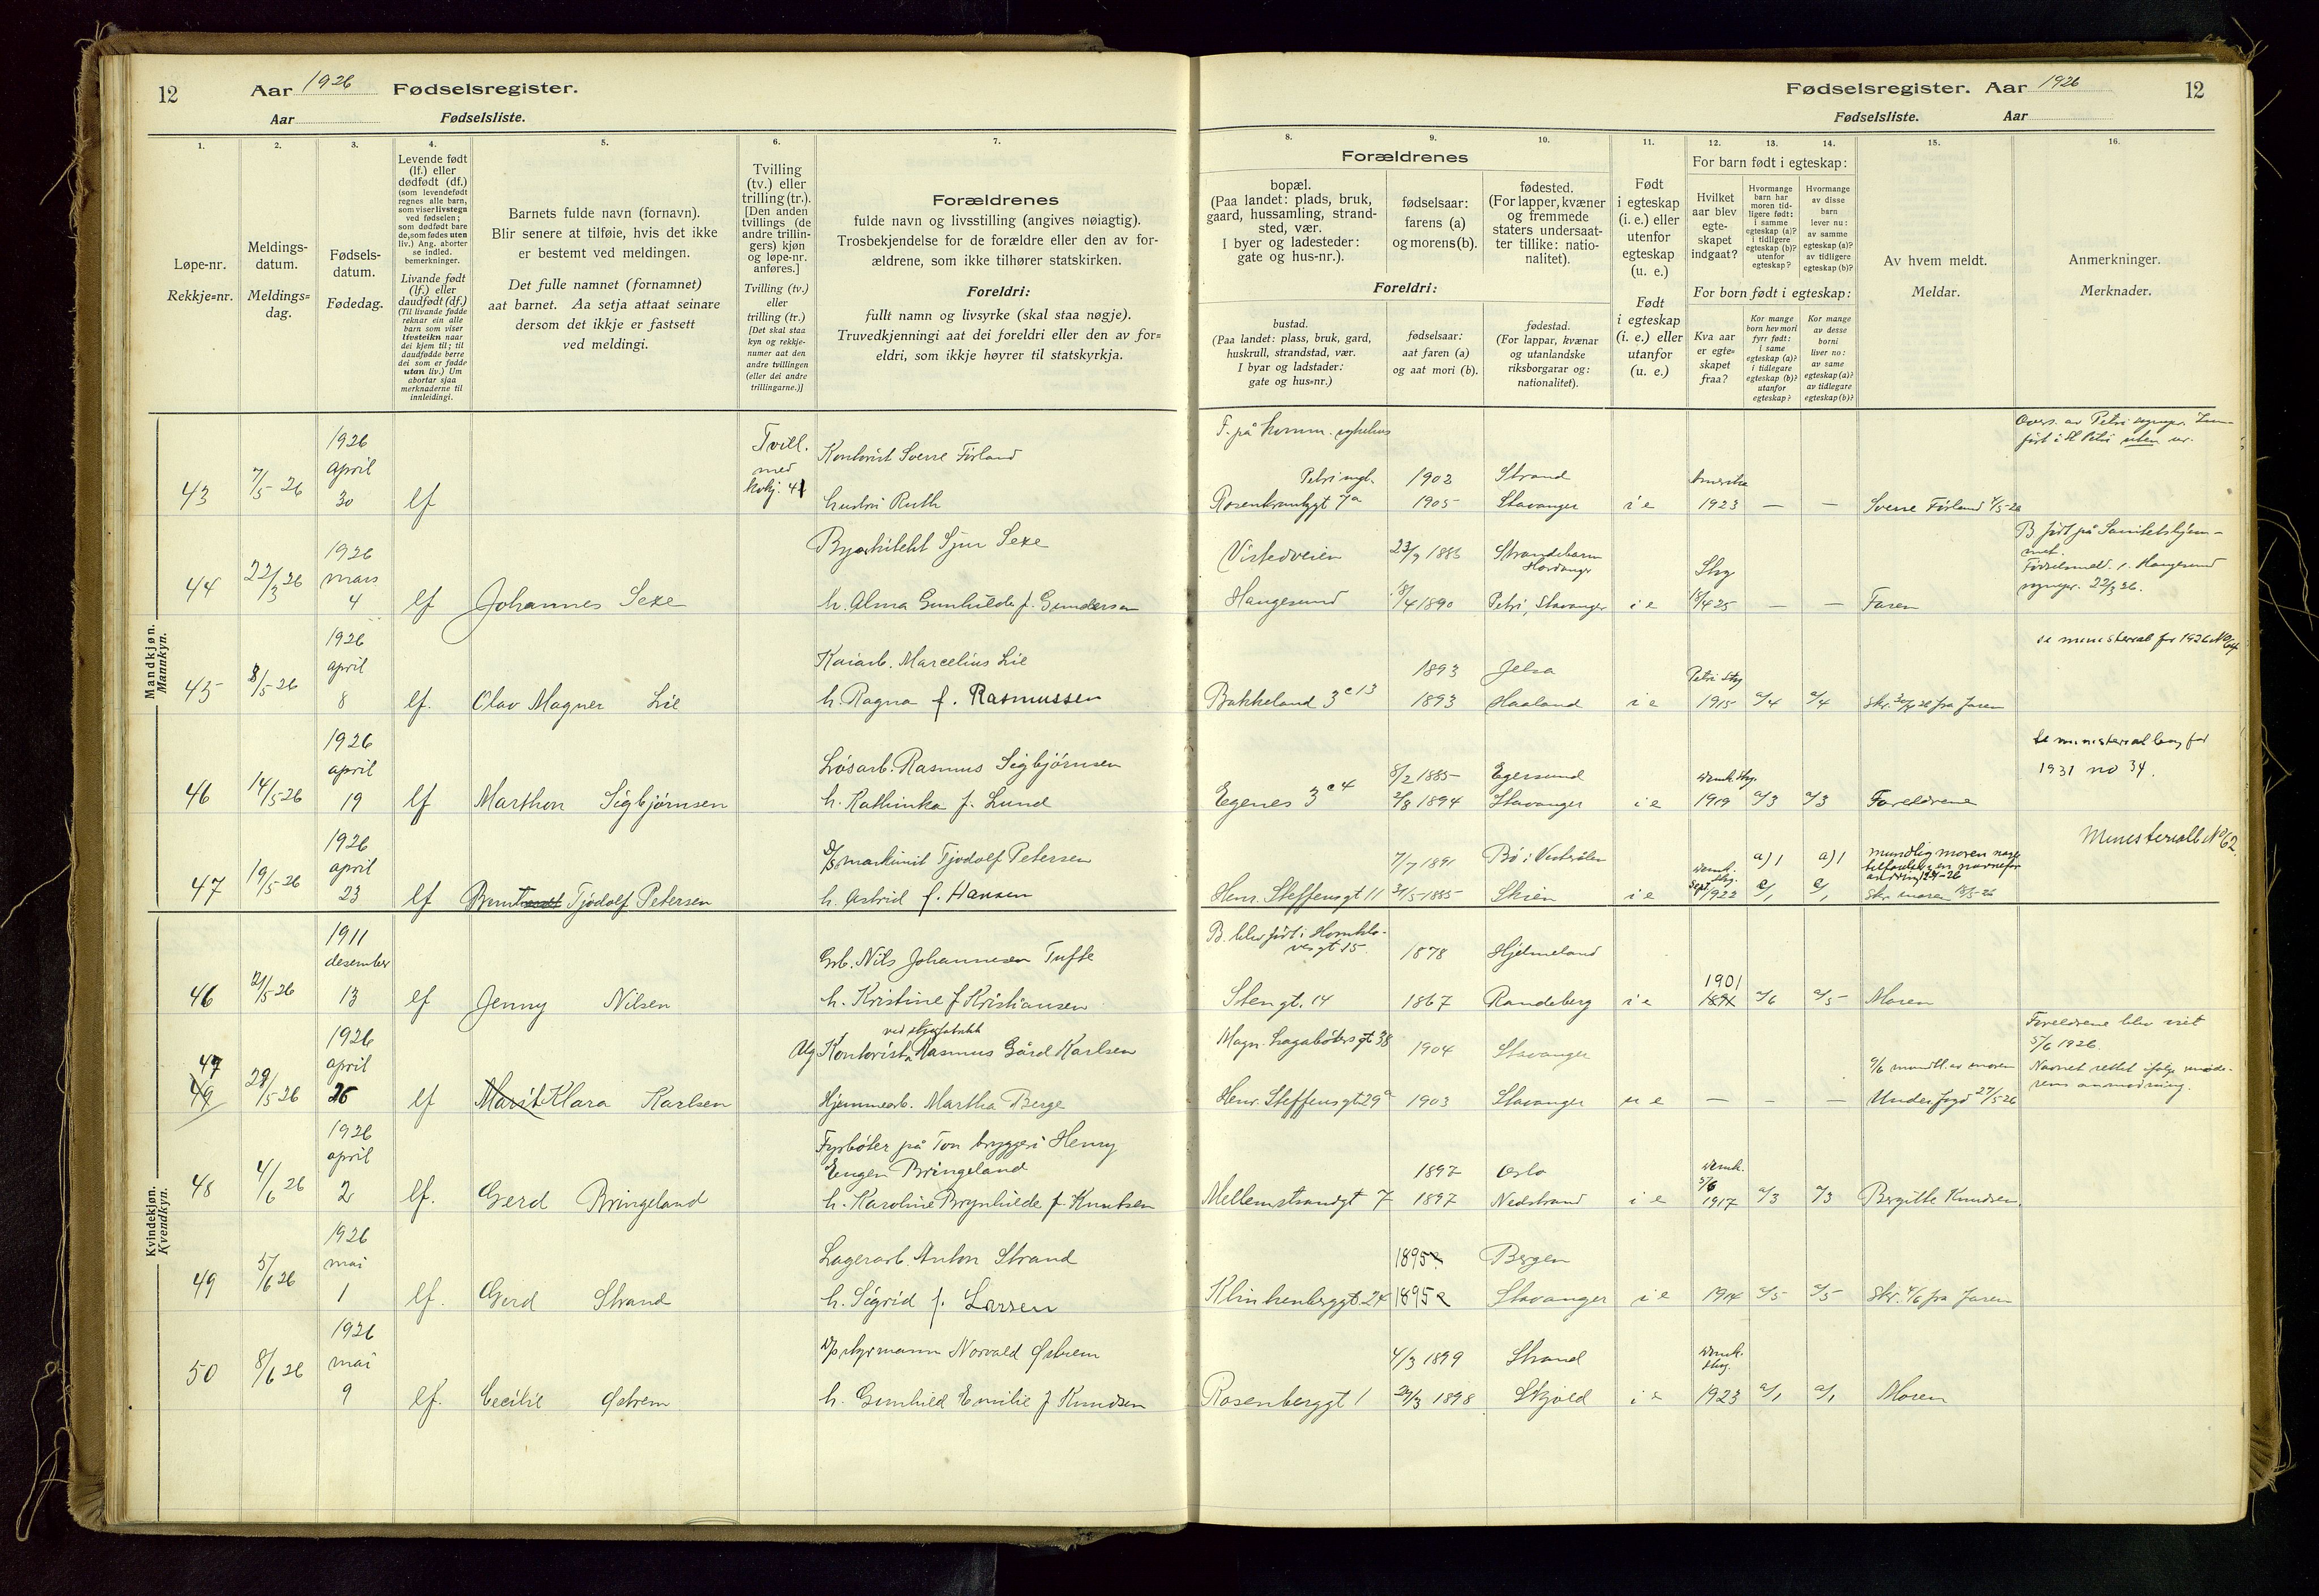 12
Aar 1926 Fødselsregister.
Aar Fødselsliste.
1. 2. 3. 4. 5. 6. 7.
Løpe-nr.
Rekkje=nr.
Meldings-
datum.
Meldings=
dag.
Fødsels-
datum.
Fødedag.
Levende født
(lf.) eller
dødfødt (df.)
(som levendefødt
regnes alle barn,
som viser livstegn
ved fødselen;
som dødfødt bare
de, som fødes uten
liv.) Ang. aborter
se indled.
bemerkninger.
Livande født
(lf.) eller
daudfødt (df.)
(Til livande fødde
reknar ein alle
barn som viser
livsteikn naar
dei kjem til; til
daudfødde berre
dei som er fødde
utan liv.) Um
abortar sjaa
merknaderne til
innleidingi.
Barnets fulde navn (fornavn).
Blir senere at tilføie, hvis det ikke
er bestemt ved meldingen.
Det fulle namnet (fornamnet)
aat barnet. Aa setja attaat seinare
dersom det ikkje er fastsett
ved meldingi.
Tvilling
(tv.) eller
trilling (tr.).
[Den anden
tvillings (de
andre trillin-
gers) kjøn
og løpe-nr.
anføres.]
Tvilling (tv.)
eller
trilling (tr.)
[Det skal staa
kyn og rekkje-
numer aat den
andre tvillingen
(eller dei andre
trillingarne.)]
Forældrenes
fulde navn og livsstilling (angives nøiagtig).
Trosbekjendelse for de forældre eller den av for-
ældrene, som ikke tilhører statskirken.
Foreldri:
fullt namn og livsyrke (skal staa nøgje).
Truvedkjenningi aat dei foreldri eller den av for=
eldri, som ikkje høyrer til statskyrkja.
Mandkjøn.
Mannkyn.
43 7/5-26 1926 april 30 lf
Tvill.
med
kvkj. 41
Kontorist Sverre Førland
hustru Ruth
44 22/3 26 1926 mars 4 lf Johannes Sexe
Byarkitekt Sjur Sexe
h. Alma Gunhilde f. Gundersen
45 8/5-26 1926 april 8 lf. Olav Magner Lie
Kaiarb. Marcelius Lie
h. Ragna f. Rasmussen
46 14/5-26 1926 april 19 lf Marthon Sigbjørnsen
Løsarb. Rasmus Sigbjørnsen
h. Kathinka f. Lund
47 19/5-26 1926 april 23 lf Tjodolf Petersen
D/S maskinist Tjodolf Petersen
h. Astrid f. Hansen
Kvindekjøn.
Kvendkyn.
46 21/5-26 1911 desember 13 lf Jenny Nilsen
Grb. Nils Johannesen Tufte
h. Kristine f Kristiansen
47
49 29/5-26 1926 april 26 lf Marit Klara Karlsen
Ug Kontorist Rasmus Gård Karlsen
Hjemmearb. Martha Berge
48 4/6 26 1926 april 2 lf. Gerd Bringeland
Fyrbøter på Tou bryggeri Henry
Eugen Bringeland
h. Karoline Brynhilde f. Knutsen
49 5/6 26 1926 mai 1 lf. Gerd Strand
Lagerarb. Anton Strand
h. Sigrid f. Larsen
50 8/6 26 1926 mai 9 lf. Cecilie Østrem
D/S styrmann Norvald Østrem
h. Gunhild Emilie f Knudsen
Fødselsregister. Aar 1926 12
Fødselsliste. Aar
8. 9. 10. 11. 12. 13. 14. 15. 16.
Forældrenes
bopæl.
(Paa landet: plads, bruk,
gaard, hussamling, strand-
sted, vær.
I byer og ladesteder:
gate og hus-nr.).
fødselsaar:
farens (a)
og morens (b).
fødested.
(For lapper, kvæner
og fremmede
staters undersaat-
ter tillike: natio-
nalitet).
Foreldri:
bustad.
(Paa landet: plass, bruk, gard,
huskrull, strandstad, vær.
I byar og ladstader:
gate og hus=nr.)
fødselsaar:
aat faren (a)
og aat mori (b).
fødestad.
(For lappar, kvænar
og utanlandske
riksborgarar og:
nationalitet).
Født
i egteskap
(i. e.) eller
utenfor
egteskap
(u. e.)
Født
i egteskap
(i. e.) eller
utanfor
(u. e.)
For barn født i egteskap:
Hvilket
aar blev
egte-
skapet
indgaat?
Hvormange
barn har
moren tid-
ligere født:
i samme
egteskap (a)?
i tidligere
egteskap (b)?
utenfor
egteskap?
Hvormange
av disse
barn
lever nu:
av samme
egteskap (a)?
av tidligere
egteskap (b)?
For born født i egteskap:
Kva aar
er egte=
skapet
fraa?
Kor mange
born hev mori
fyrr født:
i same
egteskap (a)?
i tidlegare
egteskap (b)?
utanfor
egteskap?
Kor mange
av desse
borni
liver no:
av same
egteskap (a)?
av tidlegare
egteskap (b)?
Av hvem meldt.
Meldar.
Anmerkninger.
Merknader.
F. på komm. sykehus
Petri mgl. 1902 Strand Amerika
Rosenkrantzgt 7a 1905 Stavanger i e 1923 — — Sverre Førland 7/5-26
Overs. av Petri
ført i St Petri uten nr.
Vistedveien 23/9 1886 Strandebarm
Hardanger Stvg
Haugesund 18/4 1890 Petri, Stavanger i e 18/4 25 — — Faren
B født på Sanitetshjem-
met.
Fødselsmeld. f. Haugesund
22/3 26.
1893 Jelsa Petri Stvg
Bakkeland 3 c 13 1893 Haaland i e 1915 a/4 a/4 skr. fra faren
se ministerial for 1926 No 64
8/2 1885 Egersund
Egenes 3 c 4 2/8 1894 Stavanger i e 1919 a/3 a/3 Foreldrene
se ministerial bog for
1931 no 34.
7/7 1891 Bø i Vesterålen a) 1 a) 1
Henr. Steffensgt 11 31/5-1885 Skien i e 1922 skr. moren 18/5-26
Ministerialb No 62.
B. blev født i Hornklo-
vesgt 15. 1878 Hjelmeland 1901
Stengt. 14 1867 Randeberg i e a/6 a/5 Moren
Magn. Lagabøters gt 38 1904 Stavanger
Henr. Steffensgt 29a 1903 Stavanger u e — — — 27/5-26
9/6 mundtl. av moren
Foreldrene blev viet
5/6 1926.
Navnet rettet ifølge mode-
rens anmodning.
1897 Oslo
Mellemstrandgt 7 1897 Nedstrand i e 5/6 1917 a/3 a/3 Bergitte Knudsen.
1895 Bergen
Klinkenberggt. 24 1895 Stavanger i e 1914 a/5 a/5 skr. 4/6 fra faren
4/3 1899 Strand
Rosenberggt 1 29/3 1898 Skjold i e 1923 a/1 a/1 Moren